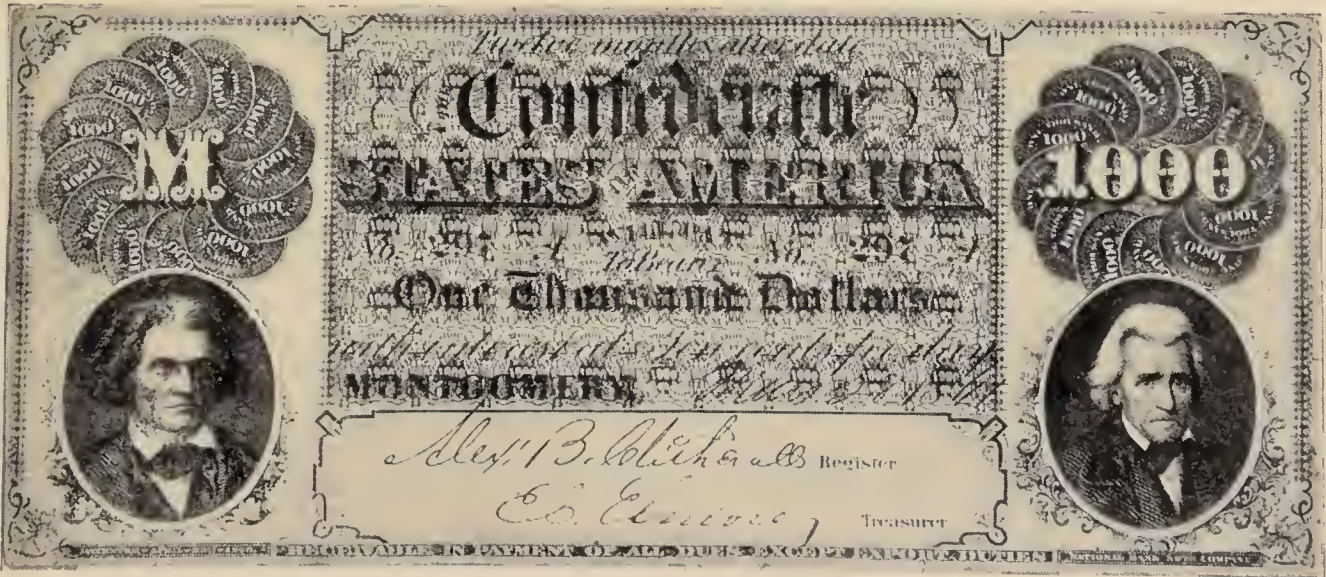 Twelve months after date
Confederate
STATES AMERICA
No 297 No 297
One Thousand Dollars
with interest at ten cents per day
MONTGOMERY,
M
1000
Alex: B. Clitherall Register
E. C. Elmore, Treasurer
RECEIVABLE IN PAYMENT OF ALL DUES EXCEPT EXPORT DUTIES
NATIONAL BANK NOTE COMPANY